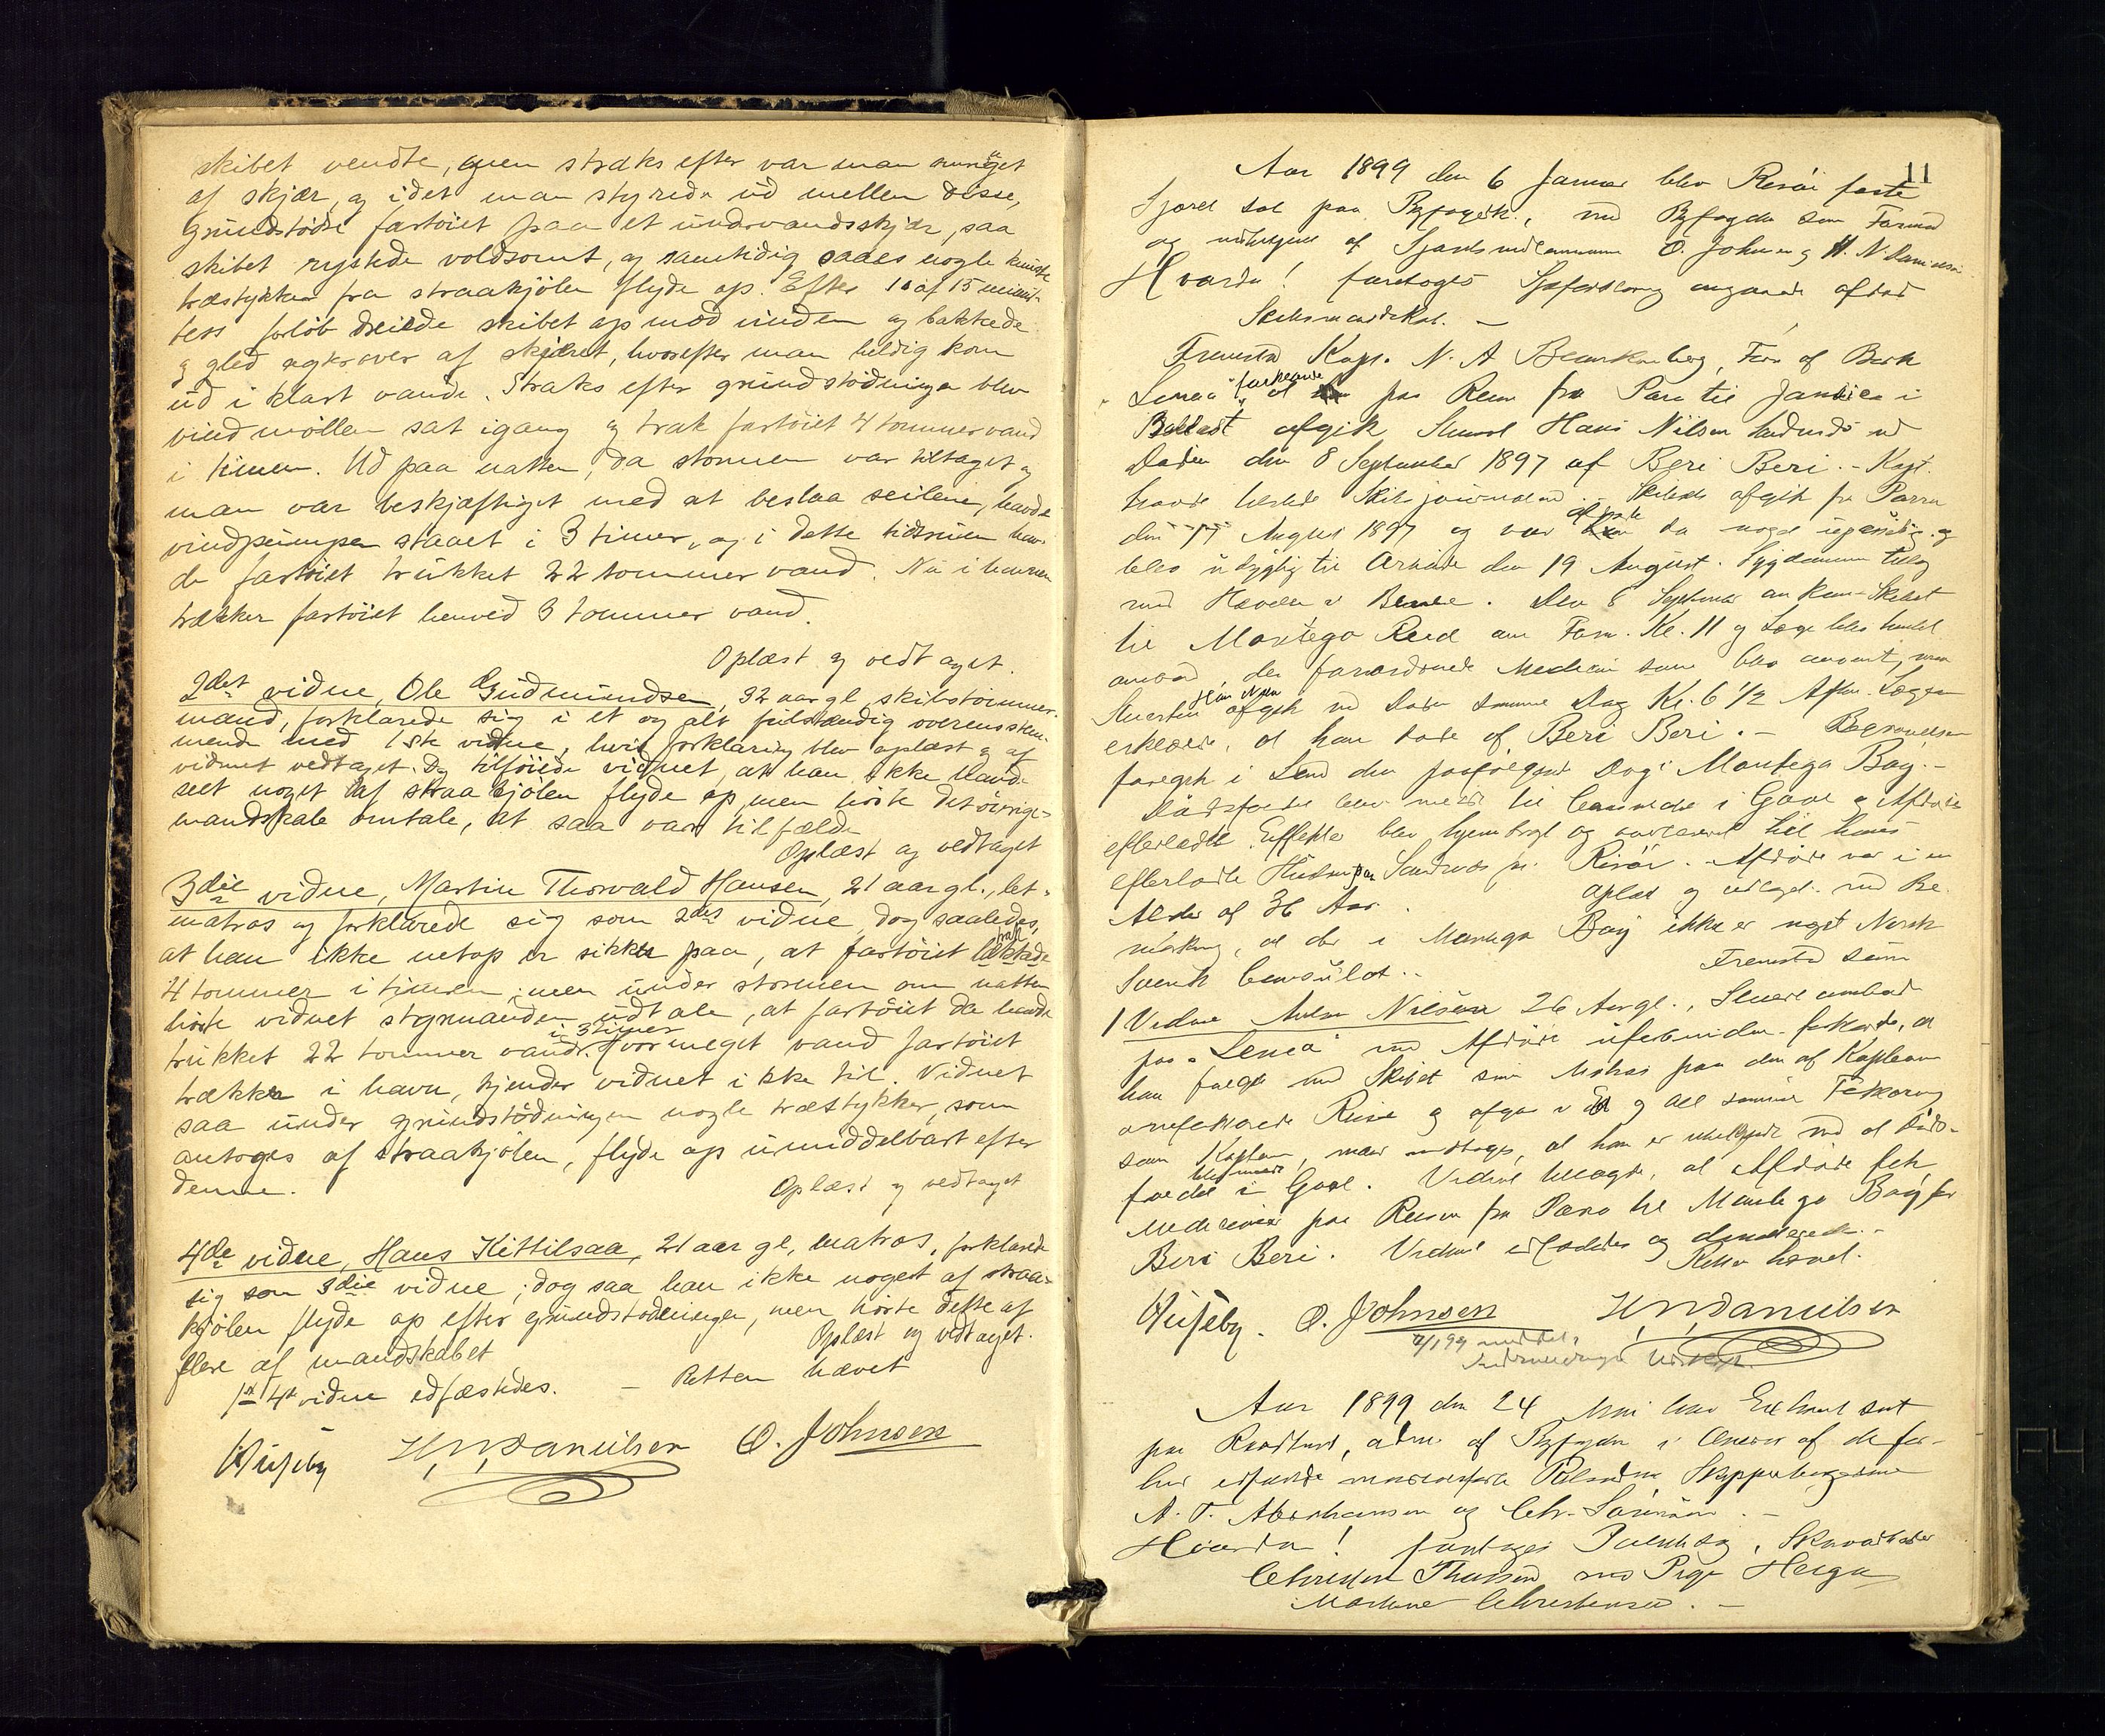 skibet vendte, men straks efter var man omringet
af skjær, og idet man styrede ud mellem disse,
grundstødte fartöiet paa et undervandsskjær, saa
skibet rystede voldsomt, og samtidig saaes nogle knuste
træstykker fra straakjölen flyde op. Efter 10 af 15 minut-
ters forløb dreiede skibet op mod vinden og bakkede
og gled agterover af skjæret, hvorefter man heldig kom
ud i klart vande. Straks efter grundstödningen blev
vindmöllen sat igang og trak fartöiet 4 tommer vand
i timen. Ud paa natten, da stormen var tiltaget og
man var beskjæftiget med at beslaa seilene, havde
vindpumpen staaet i 3 timer, og i dette tidsrum hav-
de fartöiet trukket 22 tommer vand. Nu i havnen
trækker fartöiet henved 3 tommer vand.
Oplæst og vedtaget.
2det vidne, Ole Gudmundsen, 32 aar gl. skibstömmer-
mand, forklarede sig i et og alt fuldstændig overensstem-
mende med 1ste vidne, hvis forklaring blev oplæst og af
vidnet vedtaget. Dog tilföiede vidnet, at han ikke havde
seet noget af straakjölen flyde op, men hörte det övrige
mandskabs omtale, at saa var tilfælde
Oplæst og vedtaget
3die vidne, Martin Thorvald Hansen, 21 aar gl., let-
matros og forklarede sig som 2det vidne, dog saaledes,
at han ikke netop er sikker paa, at fartöiet lækkede trak
4 tommer i timen; men under stormen om natten
hörte vidnet styrmanden udtale, at fartöiet da havde
trukket 22 tommer vand i 3 timer. Hvormeget vand fartöiet
trækker i havn, kjender vidnet ikke til. Vidnet
saa under grundstödningen nogle træstykker, som
antoges af straakjölen, flyde op umiddelbart efter
denne.
Oplæst og vedtaget
4de vidne, Hans Kittilsaa, 21 aar gl, matros, forklarede
sig som 3die vidne; dog saa han ikke noget af straa-
kjölen flyde op efter grundstödningen, men hörte dette af
flere af mandskabet
Oplæst og vedtaget.
1ste 4de vidne edfæstedes. — Retten hævet
Huseby H. N. Danielsen O. Johnsen
11
Aar 1899 den 6 Januar blev Risör faste
Sjöret sat paa Byfogdk., med Byfogden som Formand
og af Sjöretsmedlemmerne O. Johnsen og H. N. Danielsen
Hvorda! foretoges Söforklaring angaaende afdöd
Skibsmandskab. —
Fremstod Kapt. N. A. Förer af Bark
"Lenea" forklarede at paa Reise fra Para til Jamaica i
Ballast afgik Stuert Hans Nilsen ved
Döden den 8 September 1897 af Beri Beri. - Kapt.
havde Skibsjournalen. - Skibet afgik fra Parra
den 17 August 1897 og var afdöde da noget upasselig og
blev udygtig til Arbeide den 19 August. Sygdommen tiltog
med Hævelse i Benene. Den 8 September ankom Skibet
til Montego Red om Form. Kl. 11 og Læge blev hentet
ombord, der forordnede Medicin som blev anvendt, men
Stuerten Hans Nilsen afgik ved Döden samme Dag Kl. 6 1/2 Aften. Lægen
erklærede, at han döde af Beri Beri. — Begravelsen
foregik i Land den paafölgende Dag i Montego Bay. -
Dödsfaldet blev meldt til Consulatet i Gavle og Afdödes
efterladte Effekter blev hjembragt og overleveret til hans
efterladte Hustru paa Sandnæs pr. Risör. - Afdöde var i en
Alder af 36 Aar.
oplæst og vedtaget med Be-
mærkning, at der i Montego Bay ikke er noget Norsk
Svensk Consulat. -
Fremstod som
1 Vidne Nilsen 26 Aar gl., Stuert ombord
paa "Lenea" med Afdöde forklarede, at
han fulgte med Skibet som Matros paa den af Kapteinen
omforklarede Reise og afgav i Et og Alt samme Forklaring
som Kaptein, med undtagelse, at han er ubekjendt med at Döds-
faldet blev meldt i Gavle. Vidnet at Afdöde fik
Medicin paa Reisen fra Para til Montego Bay for
Beri Beri. Vidnet edfæstedes og demitterede. -
Retten hævet.
Huseby. O. Johnsen H. N. Danielsen
7/1 99 meddelt
Aar 1899 den 24 Mai blev Extraret sat
paa Raadhuset, adm. af Byfogden i Overvær af de for-
hen edfæstede Skipperborgerne
A. T. Abrahamsen og Chr. Sörensen. —
Hvorda! foretoges
Thomsen mod Pige Helga
Martine Christensen. —